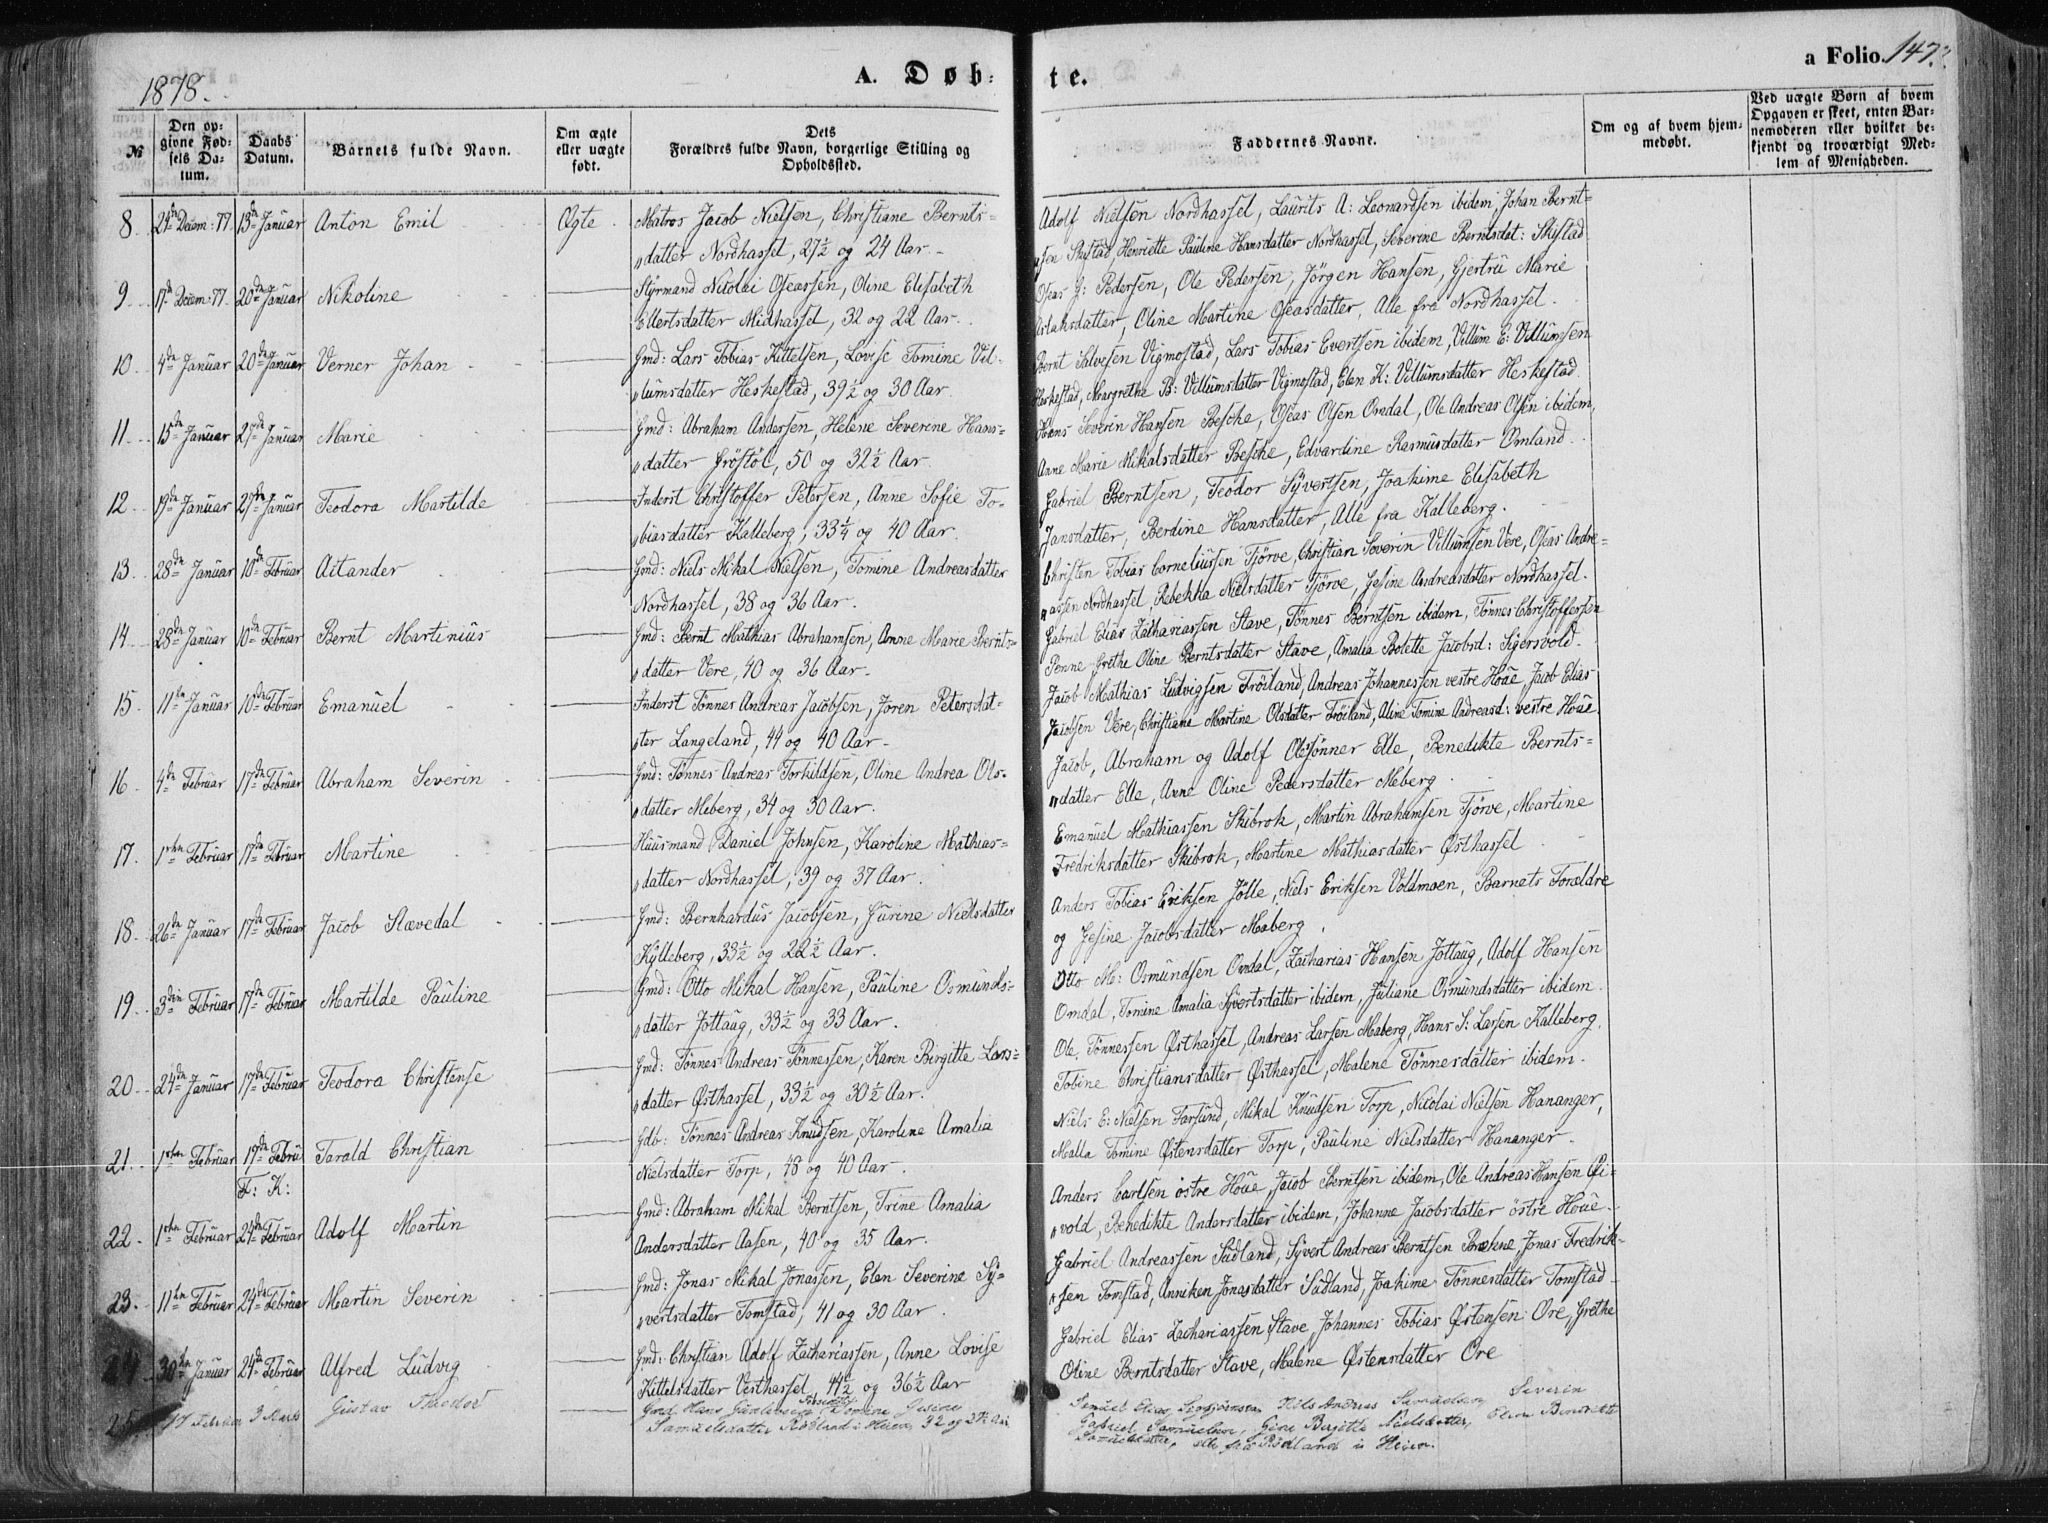 1878.
A. Døb-
te.
a Folio. 147.
№
Den opgivne Fødsels Datum.
Daabs Datum.
Barnets fulde Navn.
Om ægte eller uægte født.
Dets Forældres fulde Navn, borgerlige Stilling og Opholdssted.
Faddernes Navne.
Om og af hvem hjemmedøbt.
Ved uægte Børn af hvem Opgaven er skeet, enten Barnemoderen eller hvilket bekjendt og troværdigt Medlem af Menigheden.
8 24de Decem: 77. 13de Januar Anton Emil Ægte Matros Jacob Nielsen, Christiane Bernts-
datter Nordhassel, 27½ og 24 Aar.
Adolf Nielsen Nordhassel, Laurits A: Leonardsen ibidem, Johan Bernt-
sen Skistad, Henriette Pauline Hansdatter Nordhassel, Severine Berntsdat: Skistad
9 17de Decem: 77. 20de Januar Nikoline Styrmand Nicolai Oseassen, Oline Elisabeth
Ellertsdatter Midhassel, 32 og 22 Aar.
Oseas G: Pedersen, Ole Pedersen, Jörgen Hansen, Gjertrü Marie
Aslaksdatter, Oline Martine Oseasdatter, Alle fra Nordhassel.
10 4de Januar 20de Januar Verner Johan Gmd: Lars Tobias Kittelsen, Lovise Tomine Vil-
lumsdatter Heskestad, 39½ og 30 Aar.
Bernt Salvesen Vigmostad, Lars Tobias Evertsen ibidem, Villum E: Villumsen
Heskestad, Margrethe B: Villumsdatter Vigmostad, Elen K: Villumsdatter Heskestad
11 15de Januar 27de Januar Marie Gmd: Abraham Andersen, Helene Severine Hans-
datter Gröstöl, 50 og 32½ Aar.
Hans Severin Hansen Besche, Oseas Olsen Omdal, Ole Andreas Olsen ibidem,
Anne Marie Mikalsdatter Besche, Edvardine Rasmusdatter Omland.
12 19de Januar 27de Januar Teodora Martilde Inderst Christoffer Petersen, Anne Sofie To-
biasdatter Kalleberg, 33¼ og 40 Aar.
Gabriel Berntsen, Teodor Syvertsen, Joakime Elisabeth
Jansdatter, Berdine Hansdatter, Alle fra Kalleberg.
13 28de Januar 10de Februar Aitander Gmd: Niels Mikal Nielsen, Tomine Andreasdatter
Nordhassel, 38 og 36 Aar.
Christen Tobias Corneliüssen Tjörve, Christian Severin Villumsen Vere, Oseas Andre-
assen Nordhassel, Rebekka Nielsdatter Tjörve, Gesine Andreasdatter Nordhassel.
14 28de Januar 10de Februar Bernt Martinius Gmd: Bernt Mathias Abrahamsen, Anne Marie Bernts-
datter Vere, 40 og 36 Aar.
Gabriel Elias Zachariassen Stave, Tönnes Berntsen ibidem, Tönnes Christoffersen
Penne Grethe Oline Berntsdatter Stave, Amalia Bolette Jacobsd: Sigersvold.
15 11te Januar 10de Februar Emanuel Inderst Tönnes Andreas Jacobsen, Joren Petersdat-
ter Langeland, 44 og 40 Aar.
Jacob Mathias Ludvigsen Fröiland, Andreas Johannessen vestre Houe, Jacob Elias
Jacobsen Vere, Christiane Martine Olsdatter Fröiland, Aline Tomine Andreasd: vestre Houe.
16 4de Februar 17de Februar Abraham Severin Gmd: Tönnes Andreas Torkildsen, Oline Andrea Ols-
datter Meberg, 34 og 30 Aar.
Jacob, Abraham og Adolf Olesønner Elle, Benedikte Bernts-
datter Elle, Anne Oline Pedersdatter Meberg.
17. 1ste Februar 17de Februar Martine Huusmand Daniel Johnsen, Karoline Mathias-
datter Nordhassel, 39 og 37 Aar.
Emanuel Mathiassen Skibrok, Martin Abrahamsen Tjörve, Martine
Fredriksdatter Skibrok, Martine Mathiasdatter Østhassel
18. 26de Januar 17de Februar Jacob Stævedal Gmd: Bernhardus Jacobsen, Gurine Nielsdatter
Kylleberg, 33½ og 22½ Aar.
Anders Tobias Eriksen Jölle, Niels Eriksen Voldmoen, Barnets Forældre
og Gesine Jacobsdatter Maberg.
19. 3die Februar 17de Februar Martilde Pauline Gmd: Otto Mikal Hansen, Pauline Osmunds-
datter Jottaug, 33½ og 33 Aar.
Otto M: Osmundsen Omdal, Zacharias Hansen Jottaug, Adolf Hansen
Omdal, Tomine Amalia Syvertsdatter ibidem, Juliane Osmundsdatter ibidem.
20 24de Januar 17de Februar Teodora Christense Gmd: Tönnes Andreas Tönnessen, Karen Birgitte Lars-
datter Østhassel, 33½ og 30½ Aar.
Ole Tönnessen Østhassel, Andreas Larsen Maberg, Hans S: Larsen Kalleberg,
Tobine Christiansdatter Østhassel, Malene Tönnesdatter ibidem.
21. 1ste Februar 17de Febru F: K: Tarald Christian Gdb: Tönnes Andreas Knudsen, Karoline Amalia
Nielsdatter Torp, 48 og 40 Aar.
Niels E: Nielsen Farsund, Mikal Knudsen Torp, Nicolai Nielsen Hananger,
Malla Tomine Østensdatter Torp, Pauline Nielsdatter Hananger.
22. 1ste Februar 24de Februar Adolf Martin Gmd: Abraham Mikal Berntsen, Trine Amalia
Andersdatter Aasen, 40 og 35 Aar.
Anders Carlsen östre Houe, Jacob Berntsen ibidem, Ole Andreas Hansen Øi-
vold, Benedikte Andersdatter ibidem, Johanne Jacobsdatter östre Houe.
23. 11te Februar 24de Februar Martin Severin Gmd: Jonas Mikal Jonassen, Elen Severine Sy-
vertsdatter Tomstad, 41 og 30 Aar.
Gabriel Andreassen Sudland, Syvert Andreas Berntsen Brekne, Jonas Fredrik-
sen Tomstad, Anniken Jonasdatter Sudland, Joakime Tönnesdatter Tomstad
24 30te Januar 24de Februar Alfred Ludvig Gmd: Christian Adolf Zachariassen, Anne Lovise
Kittelsdatter Vesthassel, 44½ og 36½ Aar
Gabriel Elias Zachariassen Stave, Johannes Tobias Østensen Ore, Grethe
Oline Berntsdatter Stave, Malene Østensdatter Ore
25 17 Februar 3 Marts Gustav Theodor Gmd. Hans Tomine Gesine
Samuelsdatter Rødland i Heien 32 og
Samuel Elias Nils Andreas Samuelsen, Severin
Gabriel Samuelsen, Gine Birgitte Nielsdatter, Elen Bendikte
Samuelsdatter, alle fra Rødland i Heien.